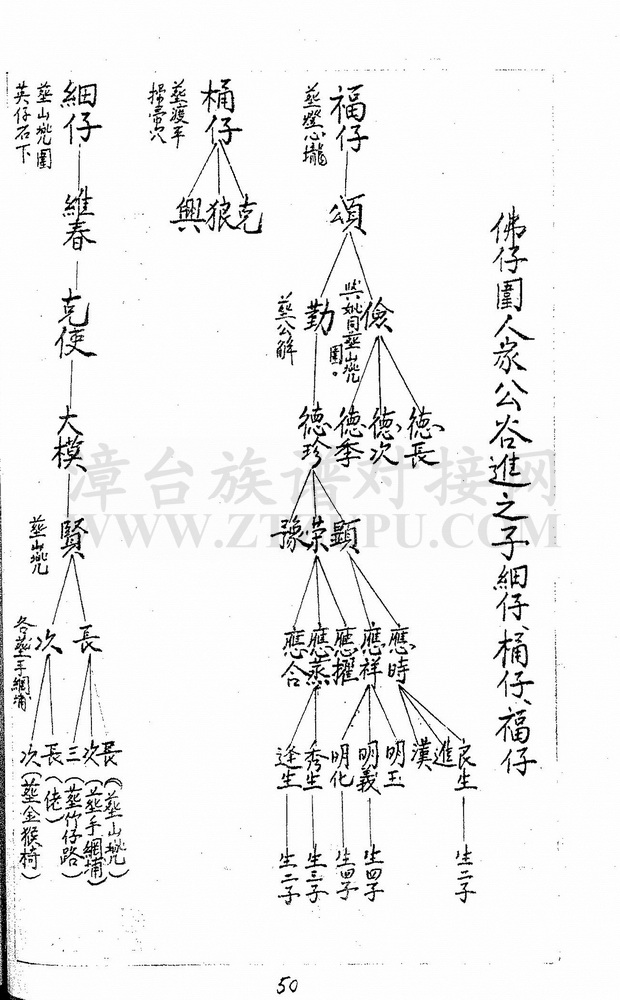 佛仔圍人家公谷進之子細仔、桶仔、福仔
福仔
葬燈心壠
頌
儉
與妣同葬山兜圍。
勤
葬公解
德長
德次
德季
德珍
顯
榮
豫
應時
應祥
應擢
應蒸
應合
良生
進
漢
明玉
明義
明化
秀生
逢生
生二子
生四子
生四子
生三子
生二子
桶仔
葬渡平
掃帚穴
克
狼
興
細仔
葬山兜圍
英仔石下
維春
克使
大模
賢
葬山兜
長
次
各葬手網埔
長(葬山兜)
次(葬手網埔)
三(葬竹仔路)
長(佬)
次(葬金猴椅)
漳台族谱对接网
WWW.ZTZUPU.COM
50